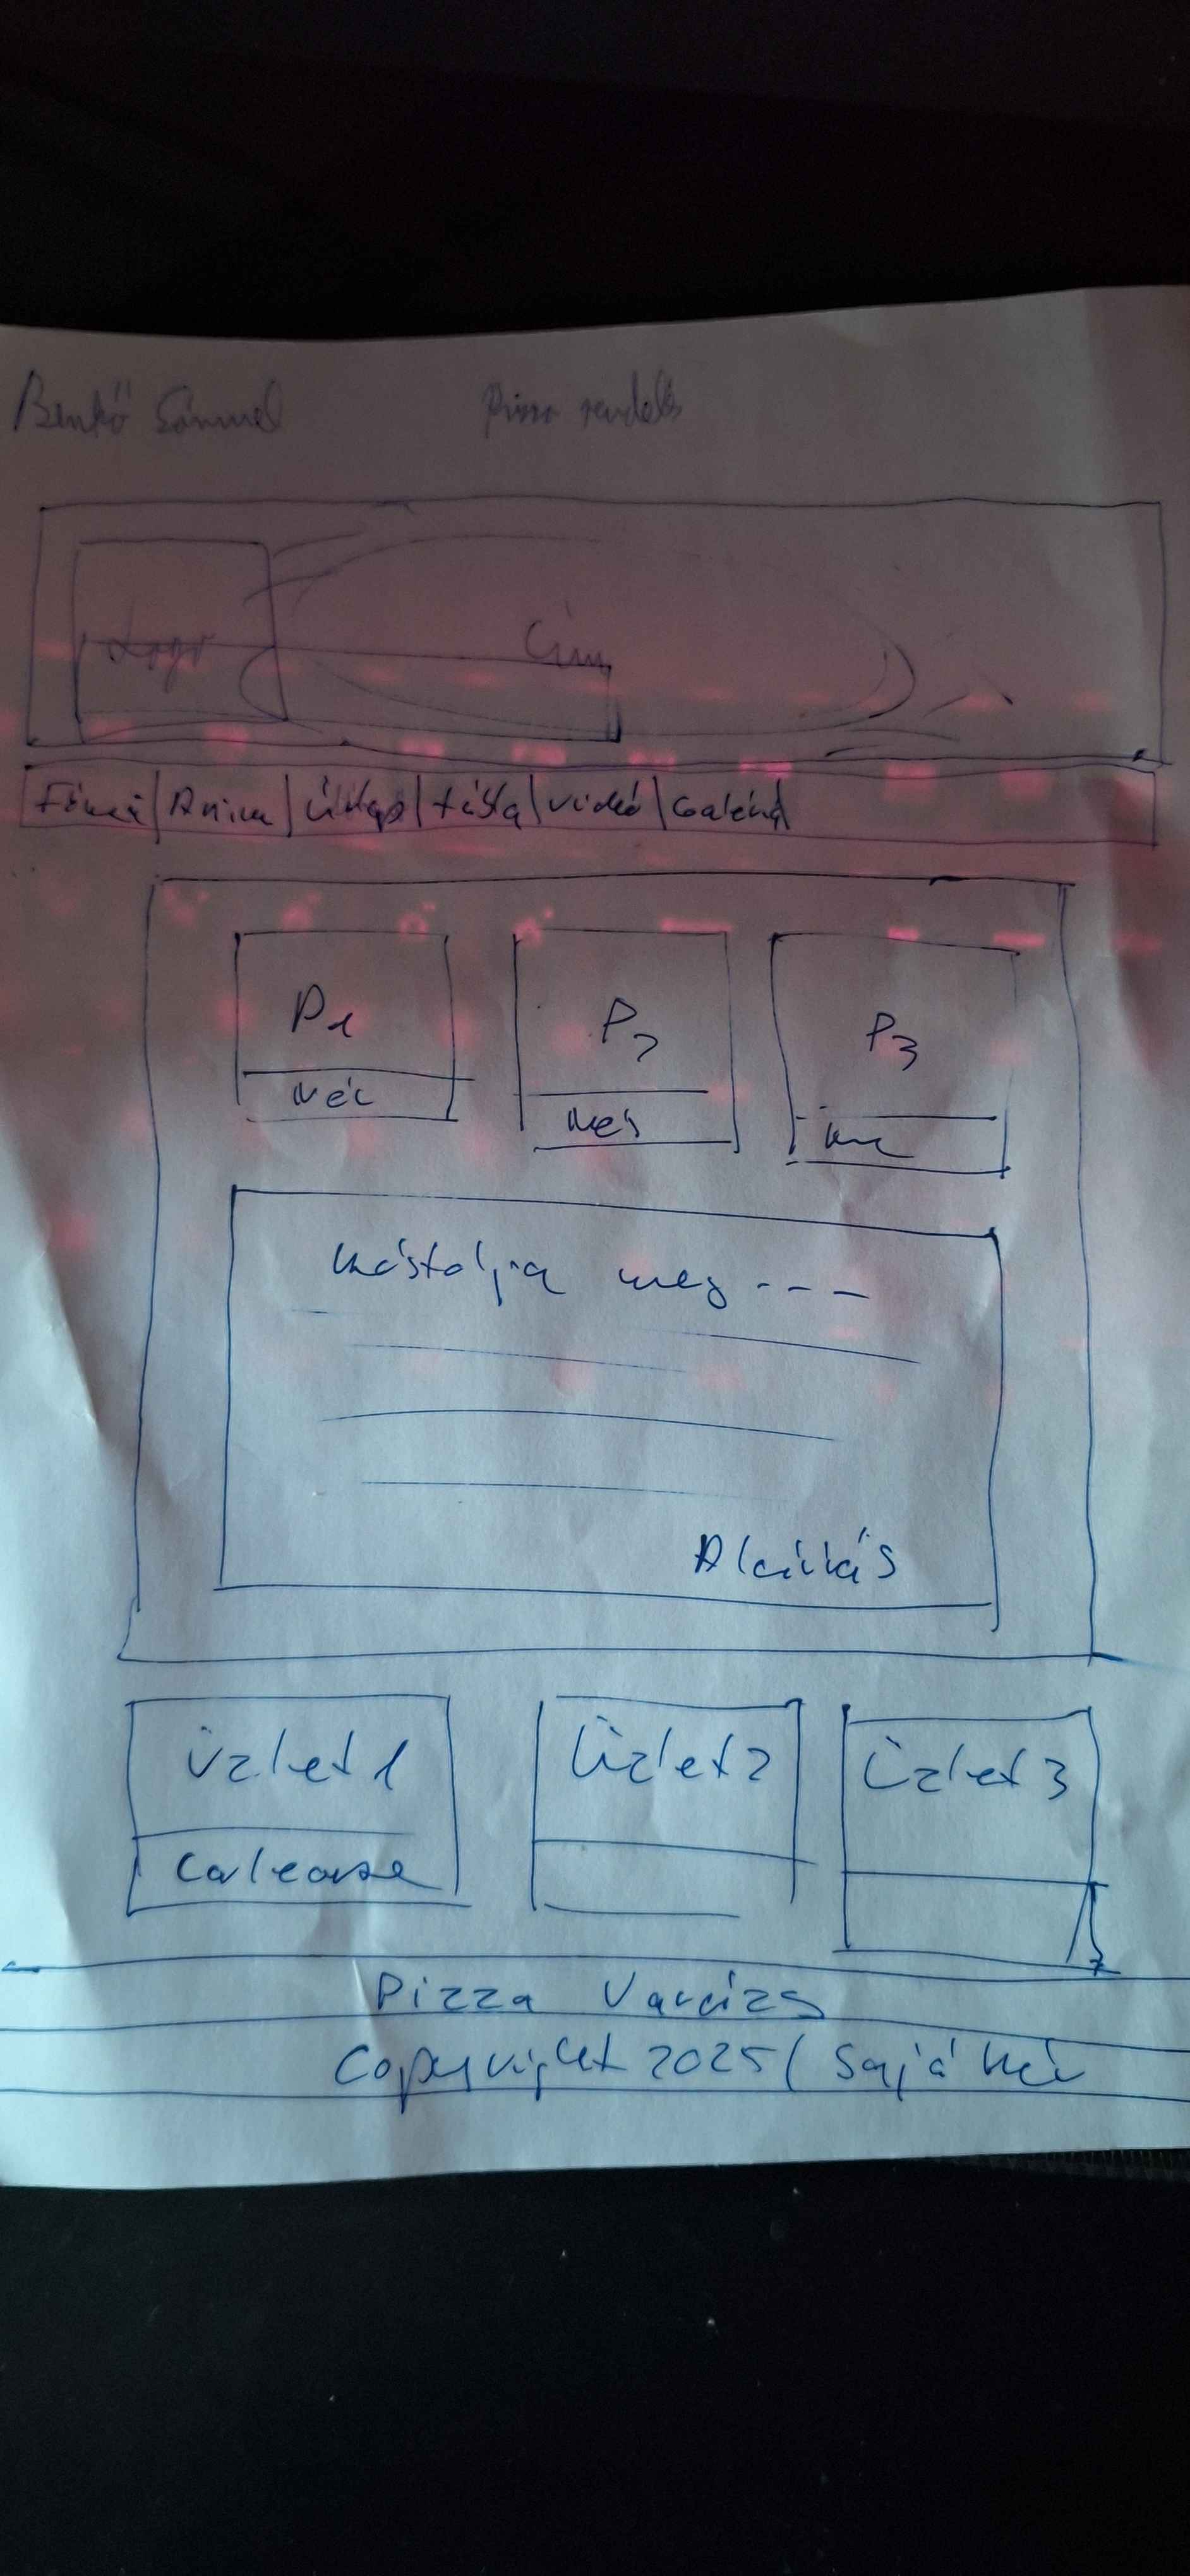 Benkő Sámuel Pizza rendelés
Logo Cím
Anima videó Galéria
P1 P2 P3
Név Név
Kóstolja meg ---
Aláírás
Üzlet 1 Üzlet 2 Üzlet 3
Pizza Varázs
Copyright 2025 / Saját Név